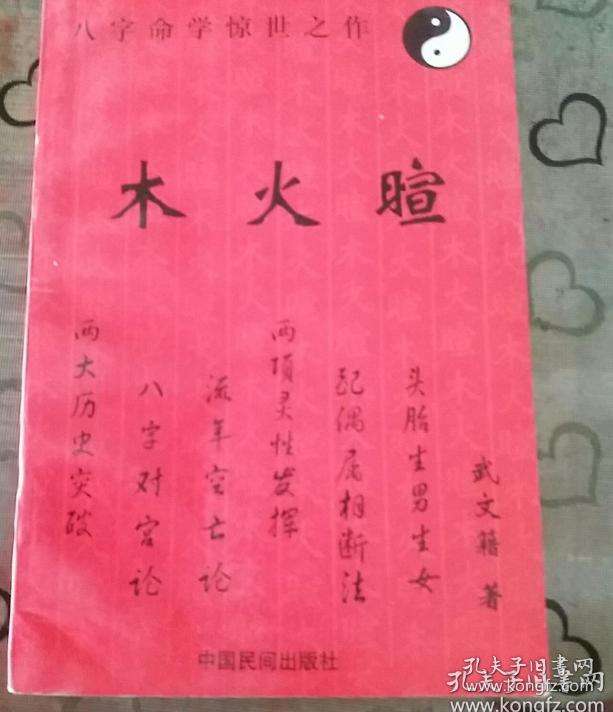 八字命学惊世之作
木火暄
两大历史突破
八字对宫论
流年空亡论
两项灵性发挥
配偶属相断法
头胎生男生女
武文籍 著
中国民间出版社
孔夫子旧书网
www.kongfz.com
孔夫子旧书网
www.kongfz.com